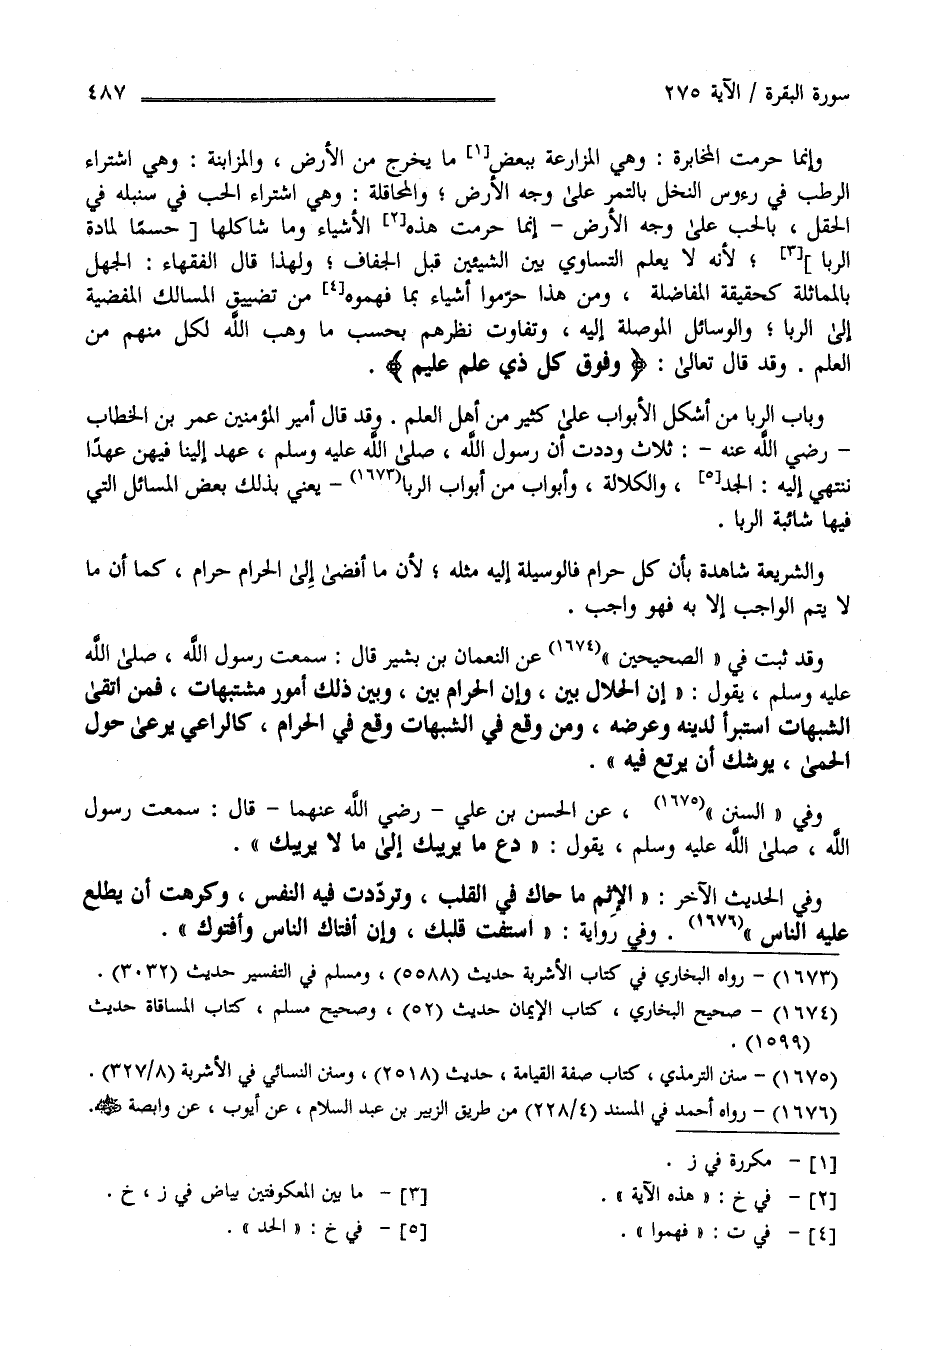 سورة البقرة / الآية ٢٧٥ ٤٨٧
وإنما حرمت المخابرة : وهي المزارعة ببعض[١] ما يخرج من الأرض ، والمزابنة : وهي اشتراء
الرطب في رءوس النخل بالتمر علىٰ وجه الأرض ؛ والمحاقلة : وهي اشتراء الحب في سنبله في
الحقل ، بالحب علىٰ وجه الأرض – إنما حرمت هذه[٢] الأشياء وما شاكلها [ حسمًا لمادة
الربا ][٣] ؛ لأنه لا يعلم التساوي بين الشيئين قبل الجفاف ؛ ولهذا قال الفقهاء : الجهل
بالمماثلة كحقيقة المفاضلة ، ومن هذا حرّموا أشياء بما فهموه[٤] من تضييق المسالك المفضية
إلىٰ الربا ؛ والوسائل الموصلة إليه ، وتفاوت نظرهم بحسب ما وهب اللَّه لكل منهم من
العلم . وقد قال تعالىٰ : ﴿ وفوق كل ذي علم عليم ﴾ .
وباب الربا من أشكل الأبواب علىٰ كثير من أهل العلم . وقد قال أمير المؤمنين عمر بن الخطاب
– رضي اللَّه عنه – : ثلاث وددت أن رسول اللَّه ، صلىٰ اللَّه عليه وسلم ، عهد إلينا فيهن عهدًا
ننتهي إليه : الجد[٥] ، والكلالة ، وأبواب من أبواب الربا(١٦٧٣) – يعني بذلك بعض المسائل التي
فيها شائبة الربا .
والشريعة شاهدة بأن كل حرام فالوسيلة إليه مثله ؛ لأن ما أفضىٰ إلىٰ الحرام حرام ، كما أن ما
لا يتم الواجب إلا به فهو واجب .
وقد ثبت في « الصحيحين »(١٦٧٤) عن النعمان بن بشير قال : سمعت رسول اللَّه ، صلىٰ اللَّه
عليه وسلم ، يقول : « إن الحلال بين ، وإن الحرام بين ، وبين ذلك أمور مشتبهات ، فمن اتقىٰ
الشبهات استبرأ لدينه وعرضه ، ومن وقع في الشبهات وقع في الحرام ، كالراعي يرعىٰ حول
الحمىٰ ، يوشك أن يرتع فيه » .
وفي « السنن »(١٦٧٥) ، عن الحسن بن علي – رضي اللَّه عنهما – قال : سمعت رسول
اللَّه ، صلىٰ اللَّه عليه وسلم ، يقول : « دع ما يريبك إلىٰ ما لا يريبك » .
وفي الحديث الآخر : « الإثم ما حاك في القلب ، وتردّدت فيه النفس ، وكرهت أن يطلع
عليه الناس »(١٦٧٦) . وفي رواية : « استفت قلبك ، وإن أفتاك الناس وأفتوك » .
(١٦٧٣) – رواه البخاري في كتاب الأشربة حديث (٥٥٨٨) ، ومسلم في التفسير حديث (٣٠٣٢) .
(١٦٧٤) – صحيح البخاري ، كتاب الإيمان حديث (٥٢) ، وصحيح مسلم ، كتاب المساقاة حديث
(١٥٩٩) .
(١٦٧٥) – سنن الترمذي ، كتاب صفة القيامة ، حديث (٢٥١٨) ، وسنن النسائي في الأشربة (٣٢٧/٨) .
(١٦٧٦) – رواه أحمد في المسند (٢٢٨/٤) من طريق الزبير بن عبد السلام ، عن أيوب ، عن وابصة ﵁.
[١] – مكررة في ز .
[٢] – في خ : « هذه الآية » . [٣] – ما بين المعكوفتين بياض في ز ، خ .
[٤] – في ت : « فهموا » . [٥] – في خ : « الحد » .